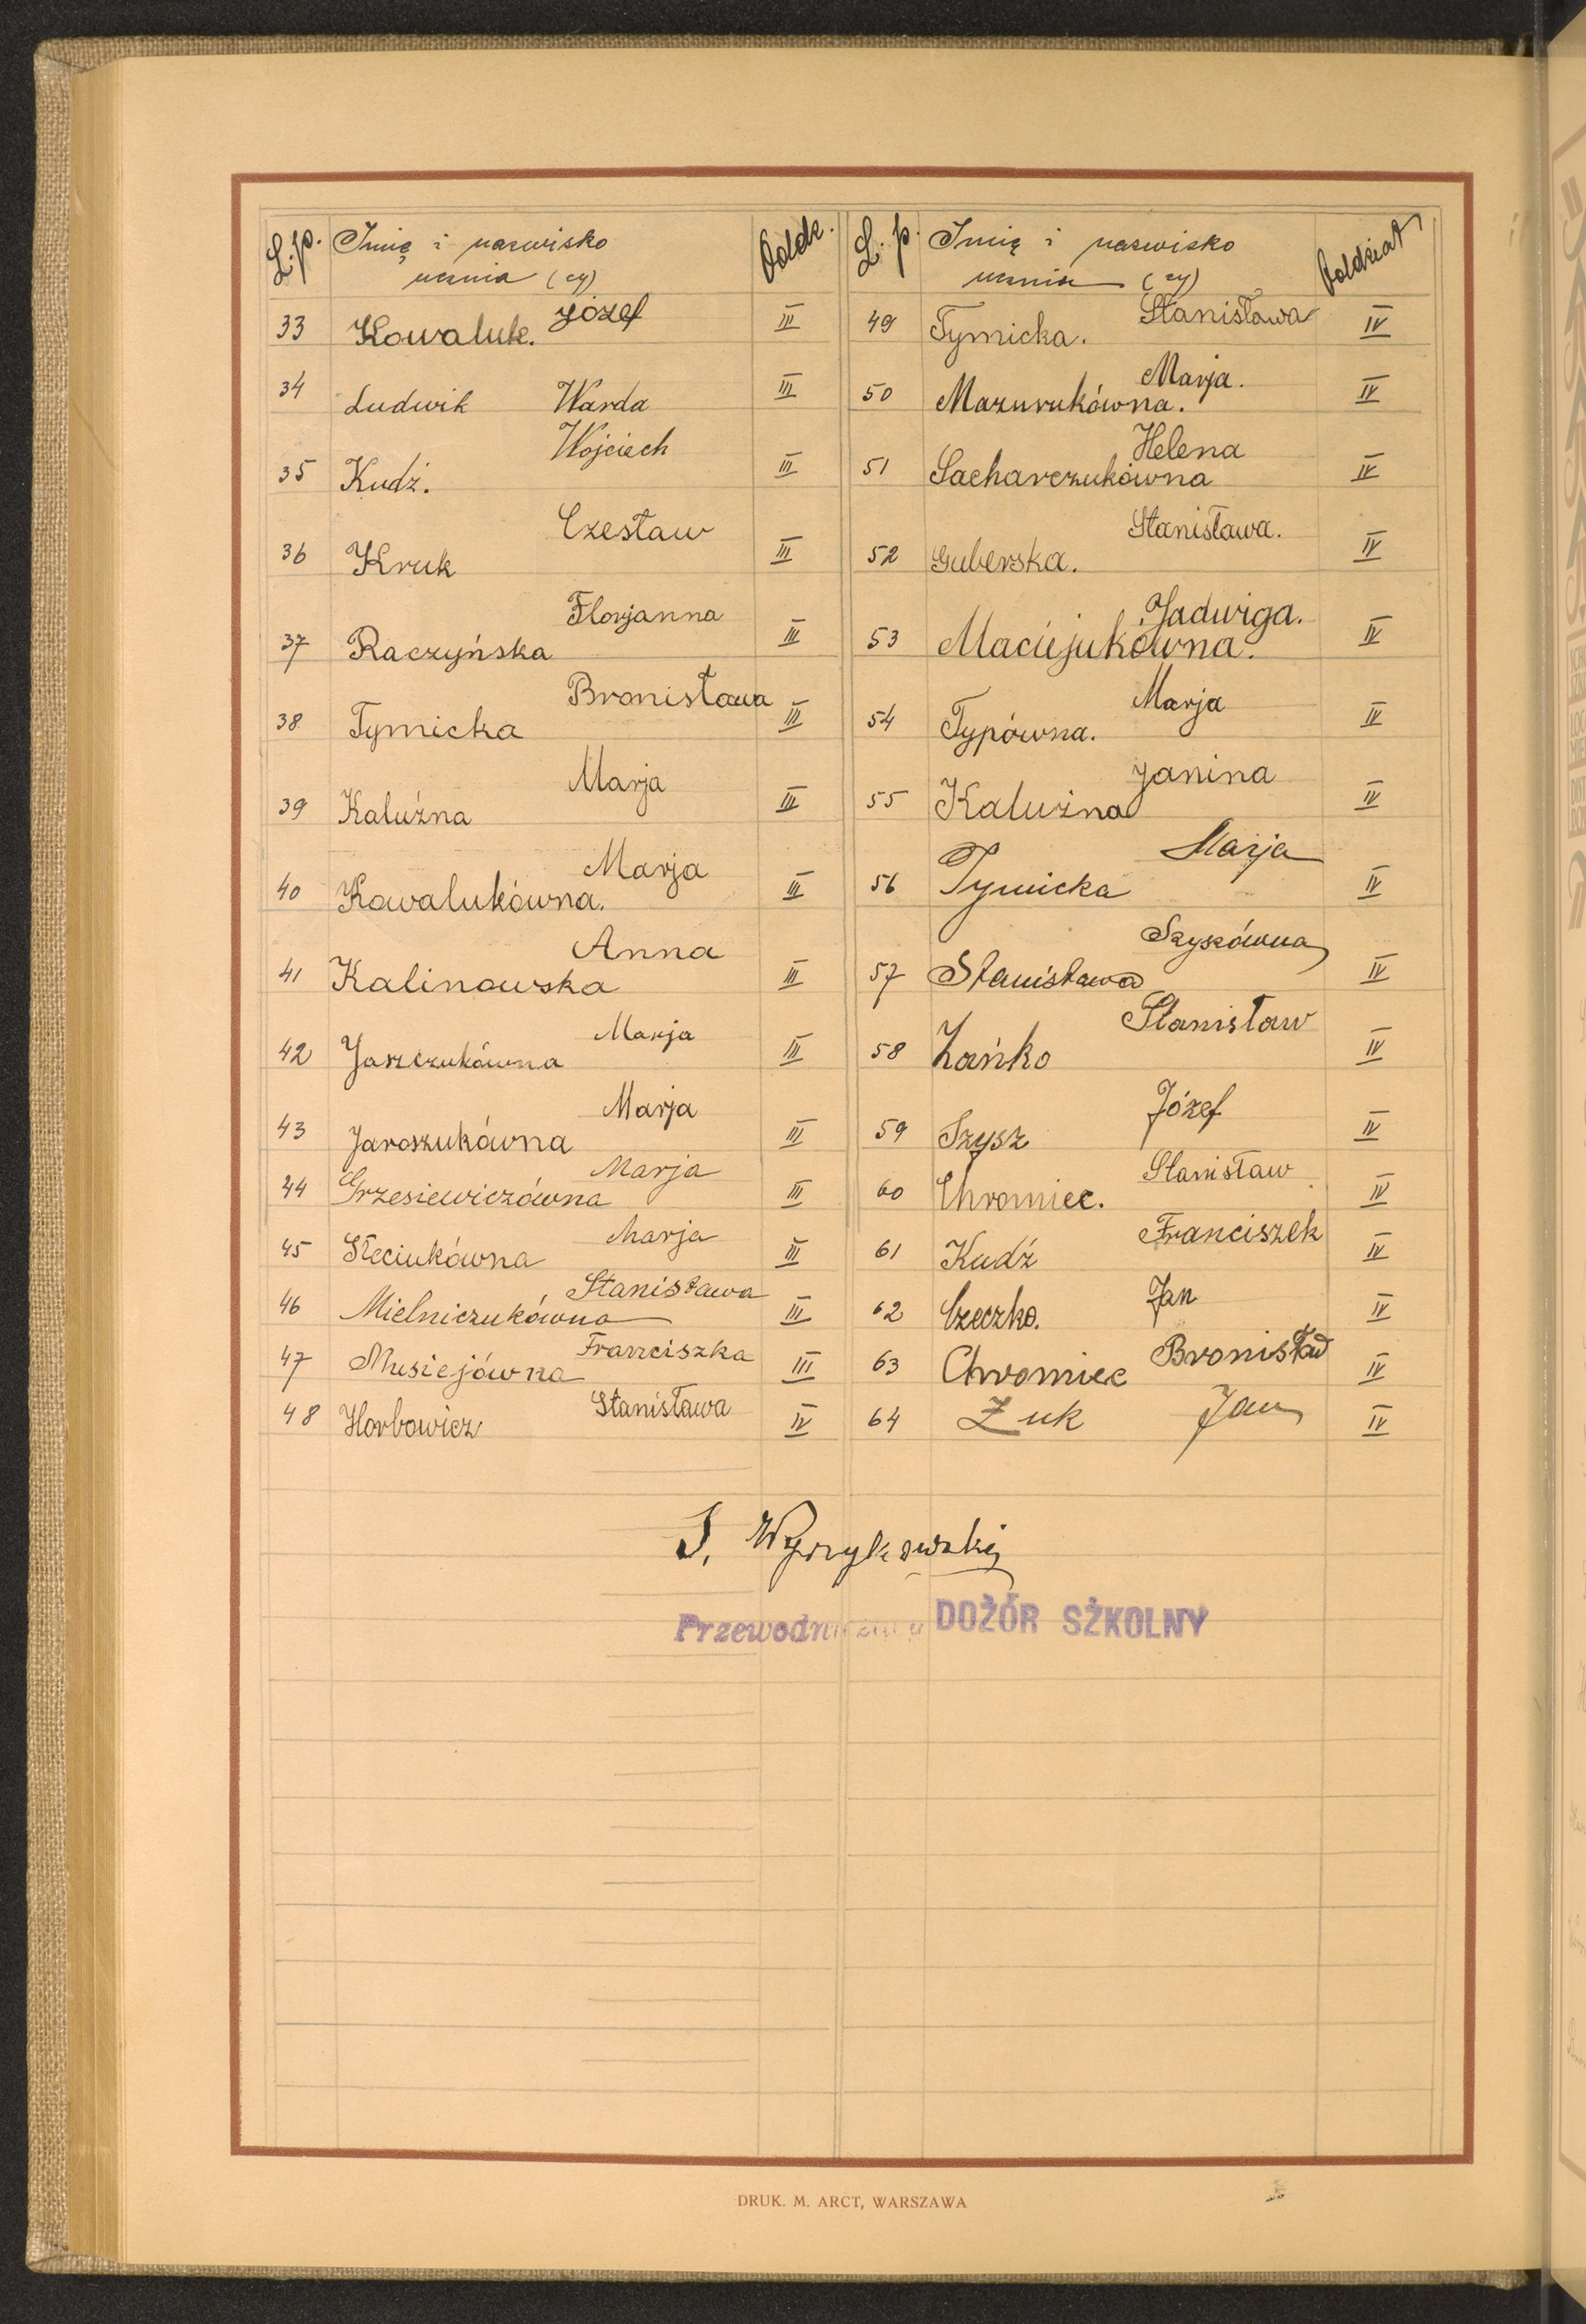 L.p. Imię i nazwisko ucznia (cy) Oddz.
33 Kowaluk. Józef III
34 Ludwik Warda III
35 Kudź. Wojciech III
36 Kruk Czesław III
37 Raczyńska Florjanna III
38 Tymicka Bronisława III
39 Kaluźna Marja III
40 Kowalukówna. Marja III
41 Kalinowska Anna III
42 Jaszczukówna Marja III
43 Jaroszukówna Marja III
44 Grzesiewiczówna Marja III
45 Steciukówna Marja III
46 Mielniczukówna Stanisława III
47 Musiejówna Franciszka III
48 Horbowicz Stanisława IV
L.p. Imię i nazwisko ucznia (cy) Oddział
49 Tymicka. Stanisława IV
50 Mazurukówna. Marja. IV
51 Sacharczukówna Helena IV
52 Guberska. Stanisława. IV
53 Maciejukówna. Jadwiga. IV
54 Typówna. Marja IV
55 Kaluźna Janina IV
56 Tymicka Marja IV
57 Stanisława Szyszówna IV
58 Zańko Stanisław IV
59 Szysz Józef IV
60 Chromiec. Stanisław IV
61 Kudź Franciszek IV
62 Czeczko. Jan IV
63 Chromiec Bronisław IV
64 Żuk Jan IV
J. Wyrzykowski
Przewodniczący DOZÓR SZKOLNY
DRUK. M. ARCT, WARSZAWA